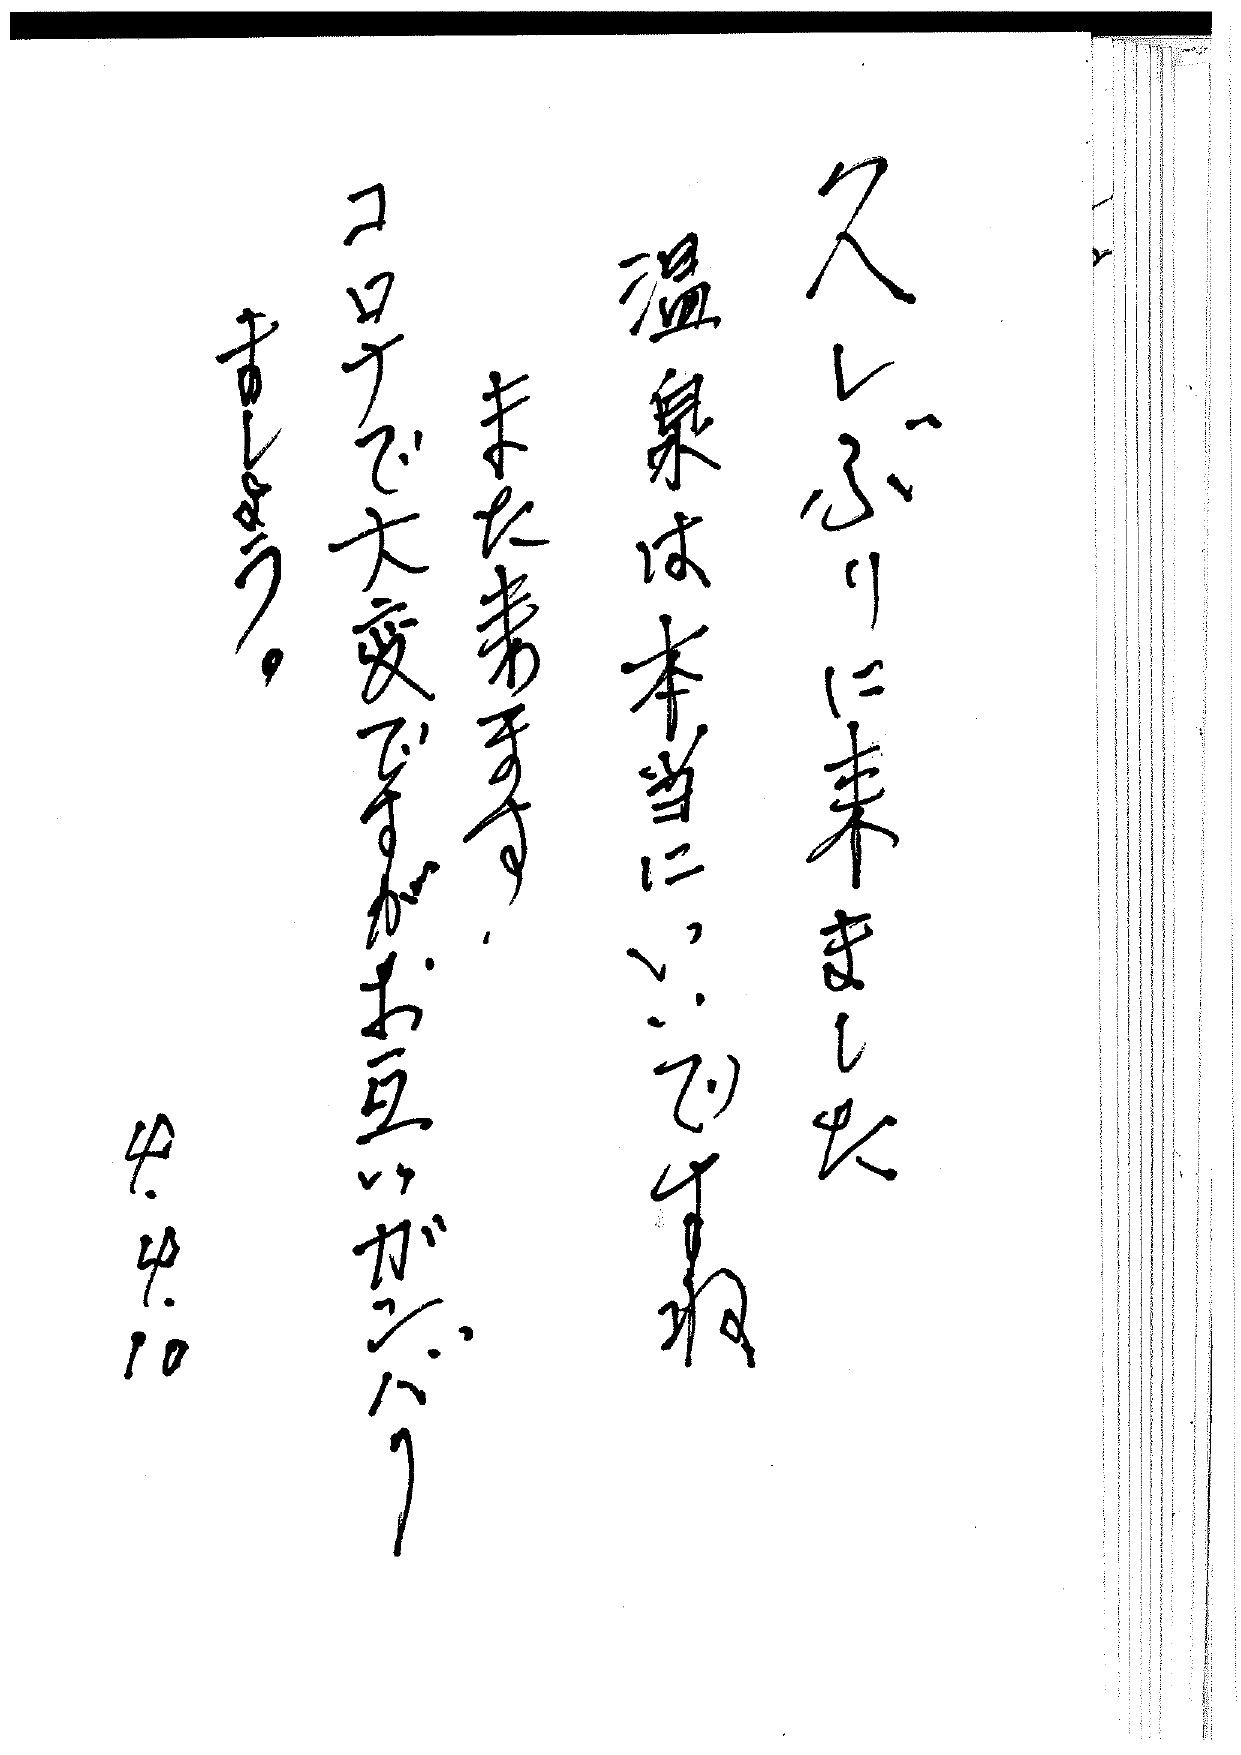 久しぶりに来ました
温泉は本当にいいですね
また来ます.
コロナで大変ですがお互いガンバリ
ましょう。
4.4.10